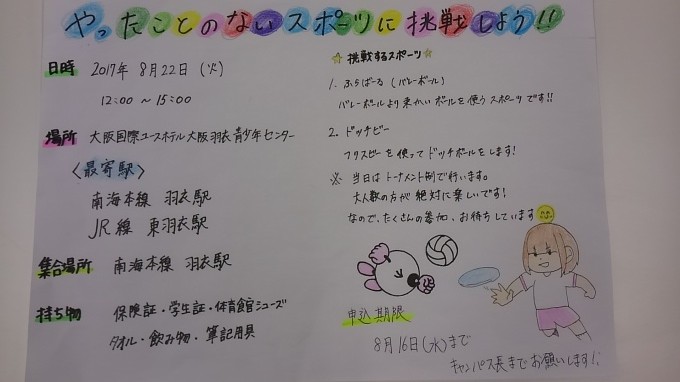 やったことのないスポーツに挑戦しよう!!
日時 2017年 8月22日 (火)
12:00 ~ 15:00
場所 大阪国際ユースホテル 大阪羽衣青少年センター
〈最寄駅〉
南海本線 羽衣駅
JR線 東羽衣駅
集合場所 南海本線 羽衣駅
持ち物 保険証・学生証・体育館シューズ
タオル・飲み物・筆記用具
☆挑戦するスポーツ☆
1. ふらばーる (バレーボール)
バレーボールより柔かいボールを使うスポーツです!!
2. ドッヂビー
フリスビーを使ってドッチボールをします!
※ 当日はトーナメント制で行います。
大人数の方が絶対に楽しいです!
なので、たくさんの参加、お待ちしています
申込期限
8月16日(水)まで
キャンパス長までお願いします!!